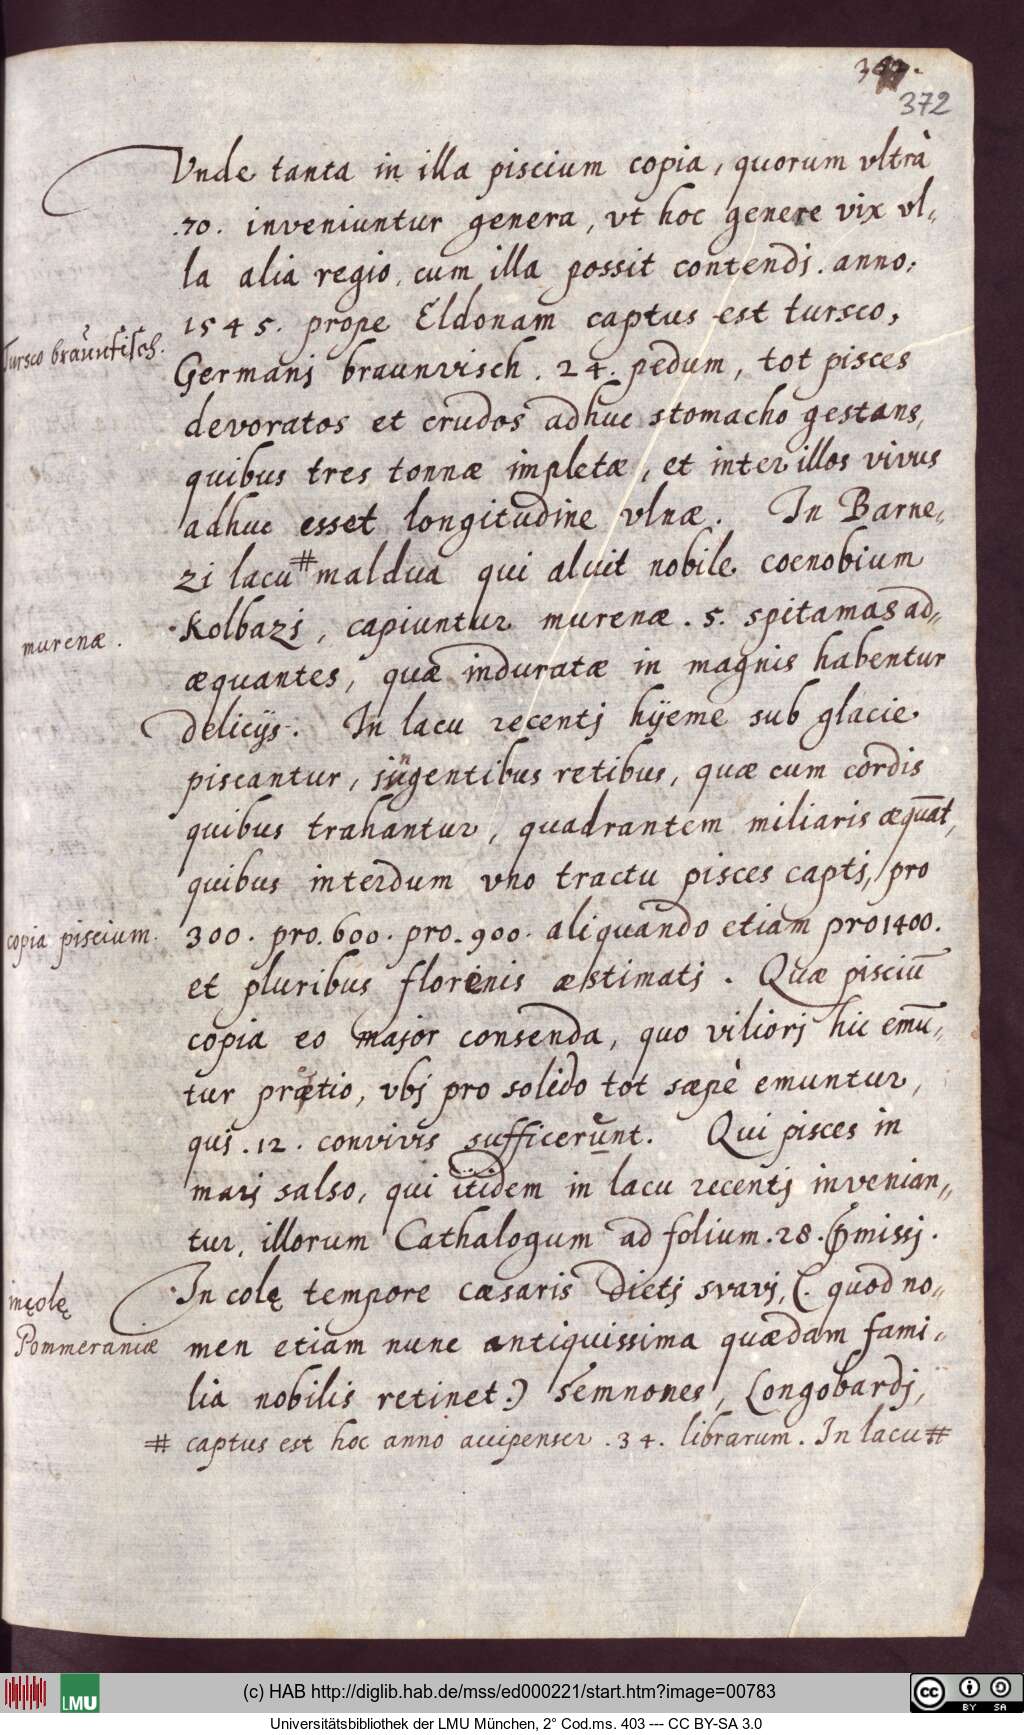 372
Vnde tanta in illa piscium copia, quorum vltrà
.70. inveniuntur genera, vt hoc genere vix vl„
la alia regio, cum illa possit contendj. anno,
1545. prope Eldonam captus est tursco,
Tursco braunfisch.
Germanj braunvisch. 24. pedum, tot pisces
devoratos et crudos adhuc stomacho gestans,
quibus tres tonnæ impletæ, et inter illos vivus
adhuc esset longitudine vlnæ. In Barne„
zi lacu # maldua qui aluit nobile coenobium
murenæ.
Kolbazj, capiuntur murenæ. 5. spitamas ad„
æquantes, quæ induratæ in magnis habentur
delicijs. In lacu recentj hÿeme sub glacie
piscantur, jngentibus retibus, quæ cum cordis
quibus trahantur, quadrantem miliaris æquāt,
quibus interdum vno tractu pisces captj, pro
copia piscium.
300. pro. 600. pro. 900. aliquando etiam pro 1400.
et pluribus florenis æstimatj. Quæ pisciū
copia eo major consenda, quo viliorj hic emū„
tur prætio, vbj pro solido tot sæpè emuntur,
quj .12. convivis sufficerunt. Qui pisces in
marj salso, qui itidem in lacu recentj invenian„
tur, illorum Cathalogum ad folium .28. pmissj.
incolę
Pommeraniæ
Incolę tempore cæsaris dictj svavj, (. quod no„
men etiam nunc antiquissima quædam fami„
lia nobilis retinet.) Semnones, Longobardj,
# captus est hoc anno accipenser .34. librarum. In lacu #
LMU
(c) HAB http://diglib.hab.de/mss/ed000221/start.htm?image=00783
cc BY SA
Universitätsbibliothek der LMU München, 2° Cod.ms. 403 --- CC BY-SA 3.0